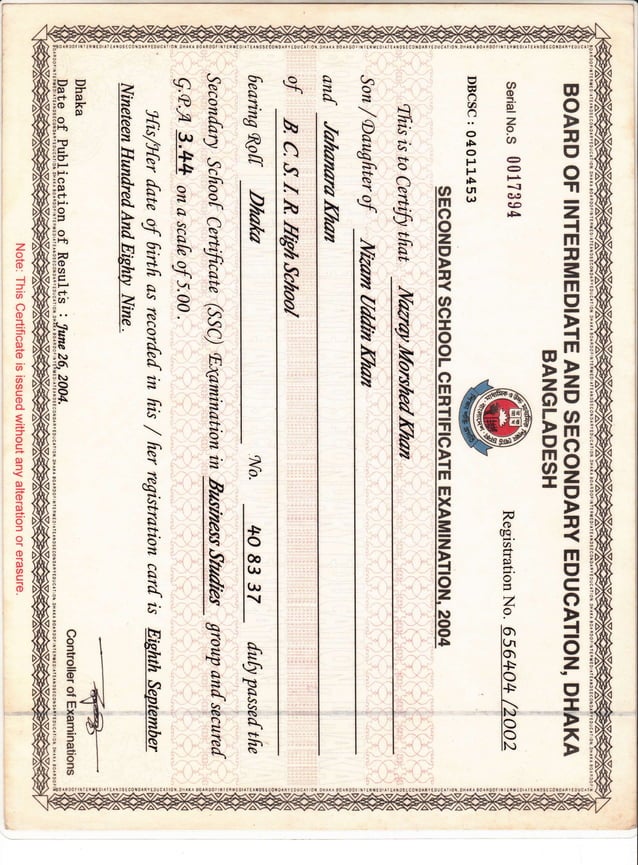 BOARD OF INTERMEDIATE AND SECONDARY EDUCATION, DHAKA
BANGLADESH
Serial No.S 0017394
Registration No. 656404 /2002
DBCSC : 04011453
SECONDARY SCHOOL CERTIFICATE EXAMINATION, 2004
This is to Certify that Nazray Morshed Khan
Son / Daughter of Nizam Uddin Khan
and Jahanara Khan
of B. C. S. I. R. High School
bearing Roll Dhaka No. 40 83 37 duly passed the
Secondary School Certificate (SSC) Examination in Business Studies group and secured
G.P.A 3.44 on a scale of 5.00 .
His/Her date of birth as recorded in his / her registration card is Eighth September
Nineteen Hundred And Eighty Nine .
Dhaka
Date of Publication of Results : June 26, 2004.
Controller of Examinations
Note: This Certificate is issued without any alteration or erasure.